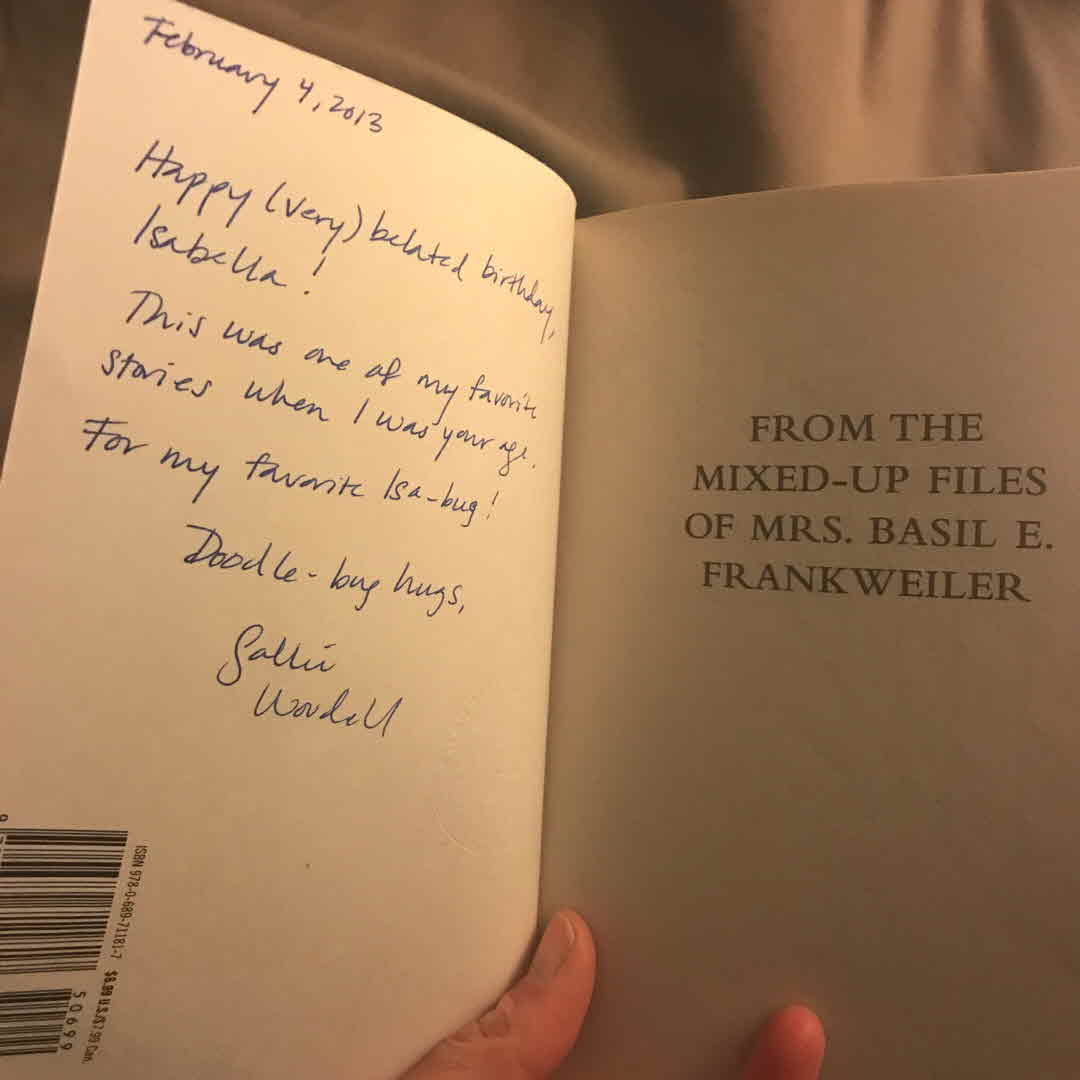 February 4, 2013
Happy (very) belated birthday,
Isabella!
This was one of my favorite
stories when I was your age.
For my favorite Isa-bug!
Doodle-bug hugs,
Sallie
ISBN 978-0-689-71181-7
$6.99 U.S./$7.99 Can.
50699
FROM THE
MIXED-UP FILES
OF MRS. BASIL E.
FRANKWEILER